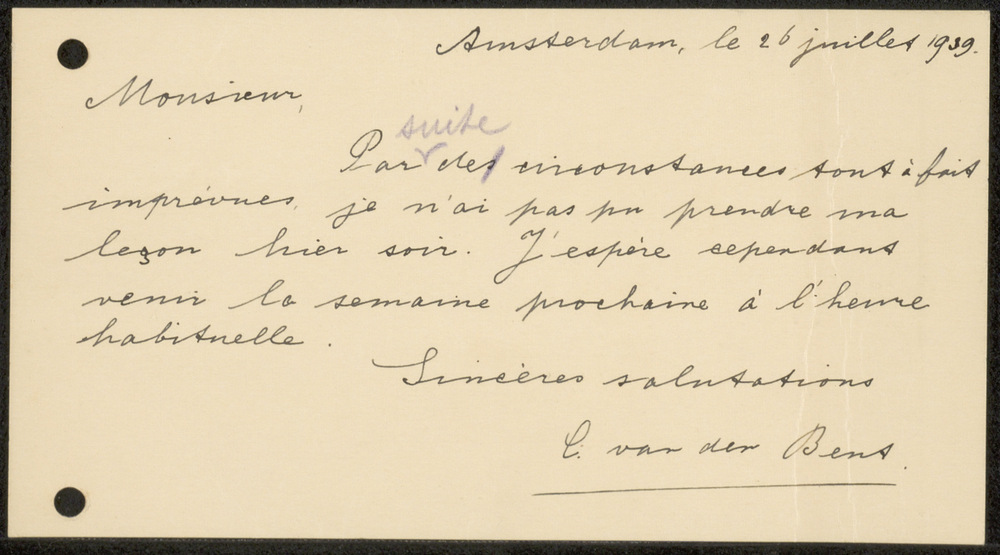 Amsterdam, le 26 juillet 1939.
Monsieur,
suite
Par des circonstances tout à fait
imprévues, je n'ai pas pu prendre ma
leçon hier soir. J'espère cependant
venir la semaine prochaine à l'heure
habituelle.
Sincères salutations
C. van der Bent.